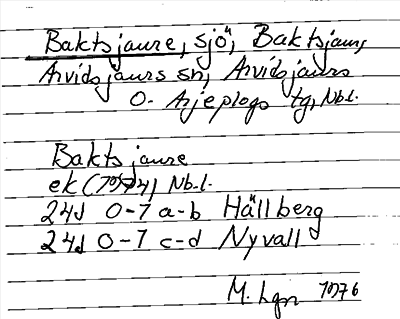 Baktsjaure, sjö, Baktsjaur,
Arvidsjaurs sn, Arvidsjaurs
o. Arjeplogs tg, Nb.l.
Baktsjaure
ek (1974) Nb.l.
24J 0-7 a-b Hällberg
24J 0-7 c-d Nyvall
M. Lgn 1976